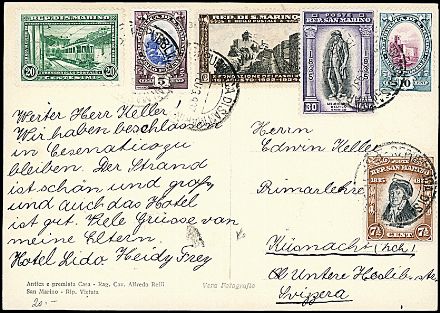 REP. DI S. MARINO
20 20
CENTESIMI
5
REP. DI S. MARINO
POSTE
REP. SAN MARINO
30
10
Werter Herr Keller!
Wir haben beschlossen
in Cesenatico zu
bleiben. Der Strand
ist schön und groß,
und auch das Hotel
ist gut. Viele Grüsse von
meine Eltern.
Hotel Lido Heidy Frey
Herrn
Edwin Keller
Primarlehrer
Küsnacht (Zch)
Ob Untere
Svizzera
POSTE
REP. SAN MARINO
1835
7½ CENT 7½
Antica e premiata Casa - Rag. Cav. Alfredo Reffi
San Marino - Rip. Vietata
Vera Fotografia
20.-